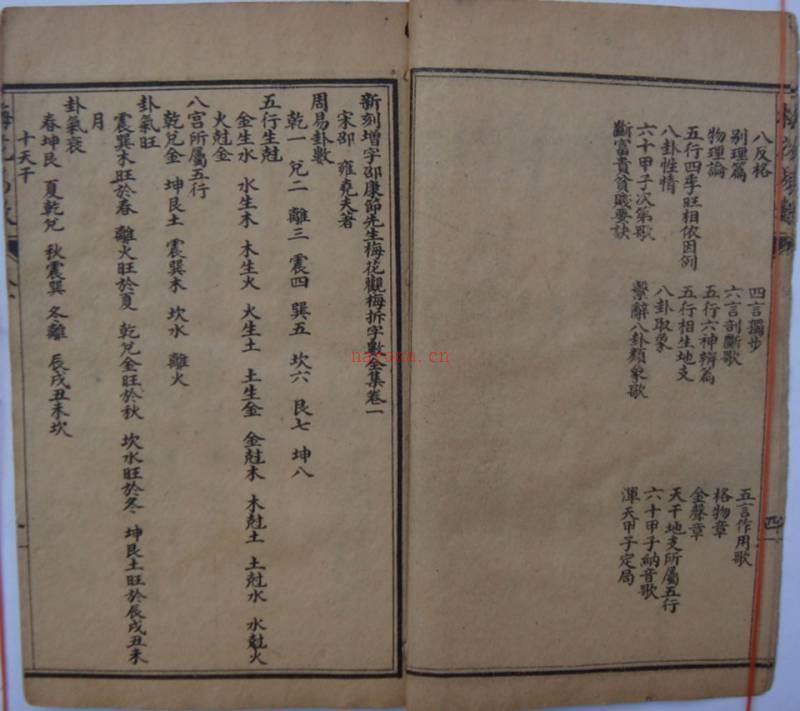 八反格
四言獨步
五言作用歌
別理篇
六言剖斷歌
格物章
物理論
五行六神辨篇
金聲章
五行四季旺相依因例
五行相生地支
天干地支所屬五行
八卦性情
八卦取象
六十甲子納音歌
六十甲子次第歌
繫辭八卦類象歌
渾天甲子定局
斷富貴貧賤要訣
四
新刻增字邵康節先生梅花觀梅拆字數全集卷一
宋邵 雍堯夫著
周易卦數
乾一 兌二 離三 震四 巽五 坎六 艮七 坤八
五行生尅
金生水 水生木 木生火 火生土 土生金 金尅木 木尅土 土尅水 水尅火
火尅金
八宮所屬五行
乾兌金 坤艮土 震巽木 坎水 離火
卦氣旺
震巽木旺於春 離火旺於夏 乾兌金旺於秋 坎水旺於冬 坤艮土旺於辰戌丑未
月
卦氣衰
春坤艮 夏乾兌 秋震巽 冬離 辰戌丑未坎
十天干
一
nayona.cn